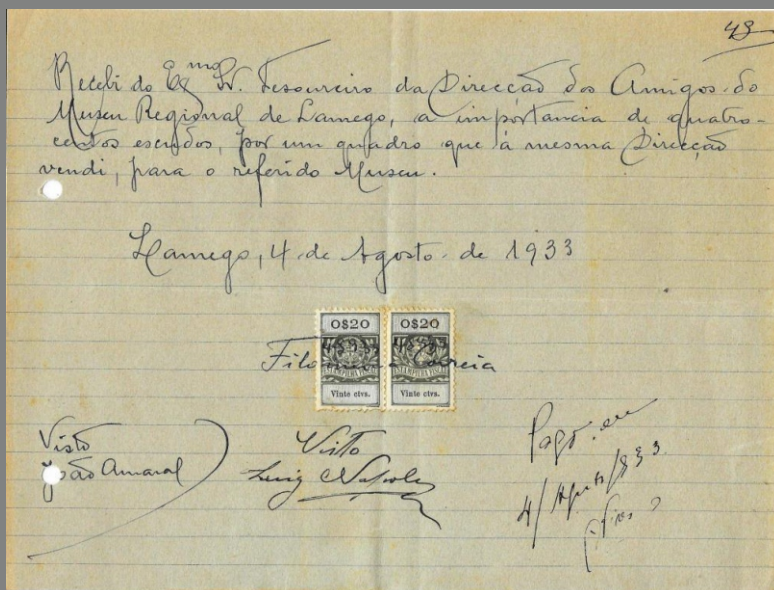 43
Recebi do Exmo Sr. Tesoureiro da Direcção dos Amigos do
Museu Regional de Lamego, a importancia de quatro-
centos escudos, por um quadro que à mesma Direcção
vendi, para o referido Museu.
Lamego, 4 de Agosto de 1933
0$20 0$20
Filomena Correia
ESTAMPILHA FISCAL
Vinte ctvs. Vinte ctvs.
Visto
João Amaral
Visto
Luiz
Pago em
4/Agosto/933